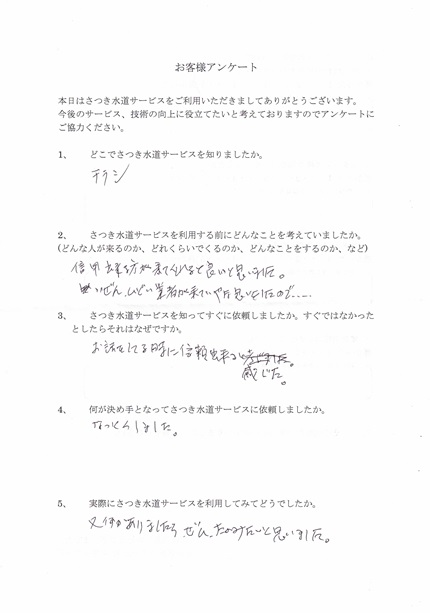 お客様アンケート
本日はさつき水道サービスをご利用いただきましてありがとうございます。
今後のサービス、技術の向上に役立てたいと考えておりますのでアンケートに
ご協力ください。
1、 どこでさつき水道サービスを知りましたか。
チラシ
2、 さつき水道サービスを利用する前にどんなことを考えていましたか。
(どんな人が来るのか、どれくらいでくるのか、どんなことをするのか、など)
信用出来る方が来てくれると良いと思いました。
いぜん、ひどい業者が来ていや思いしたので……
3、 さつき水道サービスを知ってすぐに依頼しましたか。すぐではなかった
としたらそれはなぜですか。
お話をしてる時に信頼出来ると
感じた。
4、 何が決め手となってさつき水道サービスに依頼しましたか。
なっとくしました。
5、 実際にさつき水道サービスを利用してみてどうでしたか。
又何かありましたら ぜひ、たのみたいと思いました。